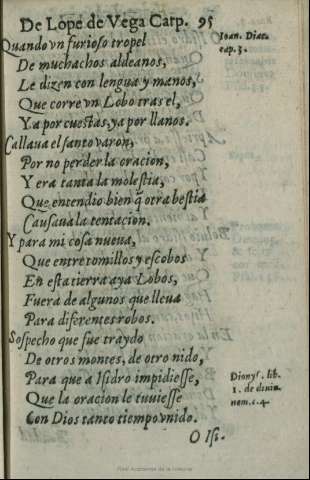 De Lope de Vega Carp. 95
Quando vn furioso tropel
De muchachos aldeanos,
Le dizen con lengua y manos,
Que corre vn Lobo tras el,
Ya por cuestas, ya por llanos.
Callaua el santo varon,
Por no perder la oracion,
Y era tanta la molestia,
Que entendio bien q̃ otra bestia
Causaua la tentacion.
Y para mi cosa nueua,
Que entre tomillos y escobos
En esta tierra aya Lobos,
Fuera de algunos que lleua
Para diferentes robos.
Sospecho que fue traydo
De otros montes, de otro nido,
Para que a Isidro impidiesse,
Que la oracion le tuuiesse
Con Dios tanto tiempo vnido.
O Isi-
Ioan. Diac.
cap. 3.
Dionys. lib.
1. de diuin.
nom. c. 4.
Real Academia de la Historia